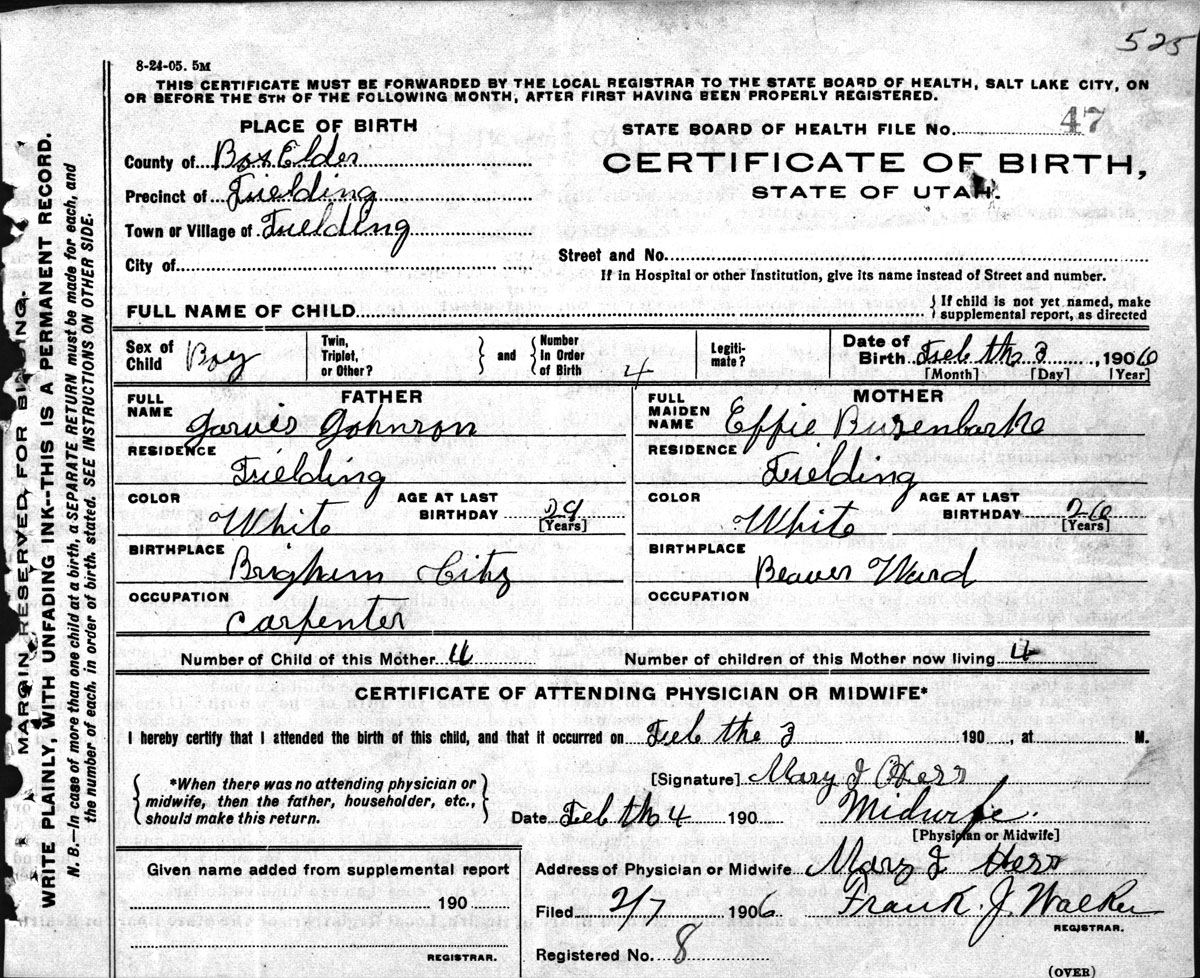 525
8-24-05. 5M
THIS CERTIFICATE MUST BE FORWARDED BY THE LOCAL REGISTRAR TO THE STATE BOARD OF HEALTH, SALT LAKE CITY, ON
OR BEFORE THE 5TH OF THE FOLLOWING MONTH, AFTER FIRST HAVING BEEN PROPERLY REGISTERED.
PLACE OF BIRTH
County of Box Elder
Precinct of Fielding
Town or Village of Fielding
City of
STATE BOARD OF HEALTH FILE No. 47
CERTIFICATE OF BIRTH,
STATE OF UTAH.
Street and No.
If in Hospital or other Institution, give its name instead of Street and number.
FULL NAME OF CHILD
{ If child is not yet named, make
supplemental report, as directed
Sex of Child Boy
Twin, Triplet, or Other? } and { Number In Order of Birth 4
Legitimate?
Date of Birth Feb th 3, 1906
[Month] [Day] [Year]
FATHER
FULL NAME Jarvis Johnson
RESIDENCE Fielding
COLOR White AGE AT LAST BIRTHDAY 29 [Years]
BIRTHPLACE Brigham City
OCCUPATION Carpenter
MOTHER
FULL MAIDEN NAME Effie Buzenbarke
RESIDENCE Fielding
COLOR White AGE AT LAST BIRTHDAY 26 [Years]
BIRTHPLACE Beaver Ward
OCCUPATION
Number of Child of this Mother 4 Number of children of this Mother now living 4
CERTIFICATE OF ATTENDING PHYSICIAN OR MIDWIFE*
I hereby certify that I attended the birth of this child, and that it occurred on Feb the 3 190 , at M.
{ *When there was no attending physician or
midwife, then the father, householder, etc.,
should make this return. }
[Signature] Mary J Herr
Date Feb th 4 190 Midwife.
[Physician or Midwife]
Given name added from supplemental report
190
REGISTRAR.
Address of Physician or Midwife Mary J Herr
Filed 2/7 1906 Frank. J Walker
REGISTRAR.
Registered No. 8
(OVER)
MARGIN RESERVED FOR BINDING.
WRITE PLAINLY, WITH UNFADING INK--THIS IS A PERMANENT RECORD.
N. B.—In case of more than one child at a birth, a SEPARATE RETURN must be made for each, and
the number of each, in order of birth, stated. SEE INSTRUCTIONS ON OTHER SIDE.